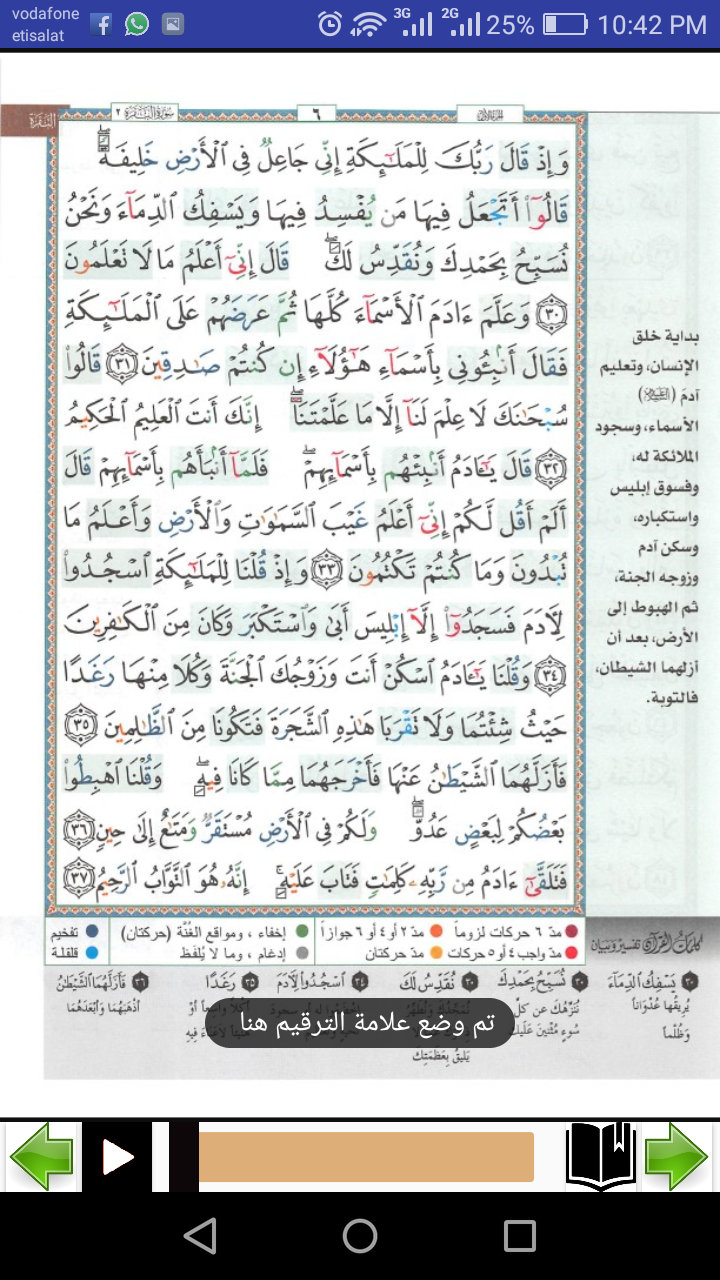 vodafone
etisalat
3G 2G 25% 10:42 PM
البقرة
سورة البقرة ٢
٦
وَإِذْ قَالَ رَبُّكَ لِلْمَلَـٰٓئِكَةِ إِنِّى جَاعِلٌ فِى ٱلْأَرْضِ خَلِيفَةً ۖ
قَالُوٓا۟ أَتَجْعَلُ فِيهَا مَن يُفْسِدُ فِيهَا وَيَسْفِكُ ٱلدِّمَآءَ وَنَحْنُ
نُسَبِّحُ بِحَمْدِكَ وَنُقَدِّسُ لَكَ ۖ قَالَ إِنِّىٓ أَعْلَمُ مَا لَا تَعْلَمُونَ
٣٠ وَعَلَّمَ ءَادَمَ ٱلْأَسْمَآءَ كُلَّهَا ثُمَّ عَرَضَهُمْ عَلَى ٱلْمَلَـٰٓئِكَةِ
فَقَالَ أَنۢبِـُٔونِى بِأَسْمَآءِ هَـٰٓؤُلَآءِ إِن كُنتُمْ صَـٰدِقِينَ ٣١ قَالُوا۟
سُبْحَـٰنَكَ لَا عِلْمَ لَنَآ إِلَّا مَا عَلَّمْتَنَآ ۖ إِنَّكَ أَنتَ ٱلْعَلِيمُ ٱلْحَكِيمُ
٣٢ قَالَ يَـٰٓـَٔادَمُ أَنۢبِئْهُم بِأَسْمَآئِهِمْ ۖ فَلَمَّآ أَنۢبَأَهُم بِأَسْمَآئِهِمْ قَالَ
أَلَمْ أَقُل لَّكُمْ إِنِّىٓ أَعْلَمُ غَيْبَ ٱلسَّمَـٰوَٰتِ وَٱلْأَرْضِ وَأَعْلَمُ مَا
تُبْدُونَ وَمَا كُنتُمْ تَكْتُمُونَ ٣٣ وَإِذْ قُلْنَا لِلْمَلَـٰٓئِكَةِ ٱسْجُدُوا۟
لِـَٔادَمَ فَسَجَدُوٓا۟ إِلَّآ إِبْلِيسَ أَبَىٰ وَٱسْتَكْبَرَ وَكَانَ مِنَ ٱلْكَـٰفِرِينَ
٣٤ وَقُلْنَا يَـٰٓـَٔادَمُ ٱسْكُنْ أَنتَ وَزَوْجُكَ ٱلْجَنَّةَ وَكُلَا مِنْهَا رَغَدًا
حَيْثُ شِئْتُمَا وَلَا تَقْرَبَا هَـٰذِهِ ٱلشَّجَرَةَ فَتَكُونَا مِنَ ٱلظَّـٰلِمِينَ ٣٥
فَأَزَلَّهُمَا ٱلشَّيْطَـٰنُ عَنْهَا فَأَخْرَجَهُمَا مِمَّا كَانَا فِيهِ ۖ وَقُلْنَا ٱهْبِطُوا۟
بَعْضُكُمْ لِبَعْضٍ عَدُوٌّ ۖ وَلَكُمْ فِى ٱلْأَرْضِ مُسْتَقَرٌّ وَمَتَـٰعٌ إِلَىٰ حِينٍ ٣٦
فَتَلَقَّىٰٓ ءَادَمُ مِن رَّبِّهِۦ كَلِمَـٰتٍ فَتَابَ عَلَيْهِ ۚ إِنَّهُۥ هُوَ ٱلتَّوَّابُ ٱلرَّحِيمُ ٣٧
بداية خلق
الإنسان، وتعليم
آدم
الأسماء، وسجود
الملائكة له،
وفسوق إبليس
واستكباره،
وسكن آدم
وزوجه الجنة،
ثم الهبوط إلى
الأرض، بعد أن
أزلهما الشيطان،
فالتوبة.
مدّ ٦ حركات لزوماً مدّ ٢ أو ٤ أو ٦ جوازاً إخفاء ، ومواقع الغنّة (حركتان) تفخيم
مدّ واجب ٤ أو ٥ حركات مدّ حركتان إدغام ، وما لا يُلفظ قلقلة
كلمات القرآن تفسير وبيان
٣٠ يَسْفِكُ الدِّمَآءَ ٣٠ نُسَبِّحُ بِحَمْدِكَ ٣٠ نُقَدِّسُ لَكَ ٣٤ اسْجُدُوا لِآدَمَ ٣٥ رَغَدًا ٣٦ فَأَزَلَّهُمَا الشَّيْطَانُ
يُرِيقُها عُدْوَاناً نُنَزِّهُكَ عن كلِّ أكلاً واسعاً أوْ أَذْهَبَهُما وَأَبْعَدَهُما
وَظُلْماً سُوءٍ مُثْنِينَ عَلَيْكَ
يَلِيقُ بِعَظَمَتِك
تم وضع علامة الترقيم هنا